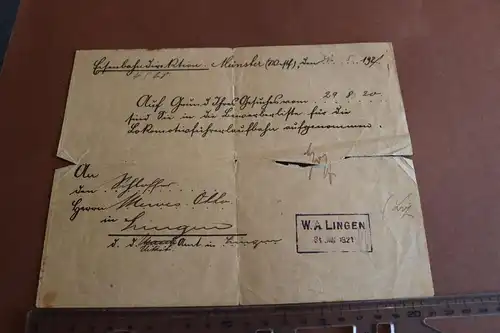 Eisenbahndirektion. Münster (Westf), den 192
Auf Grund Ihres Gesuches vom 29.8.20
sind Sie in die Bewerberliste für die
Lokomotivführerlaufbahn aufgenommen.
An
den Schlosser
Herrn Otto
in
Lingen
d. d. Amt in Lingen
W.A. LINGEN
1921